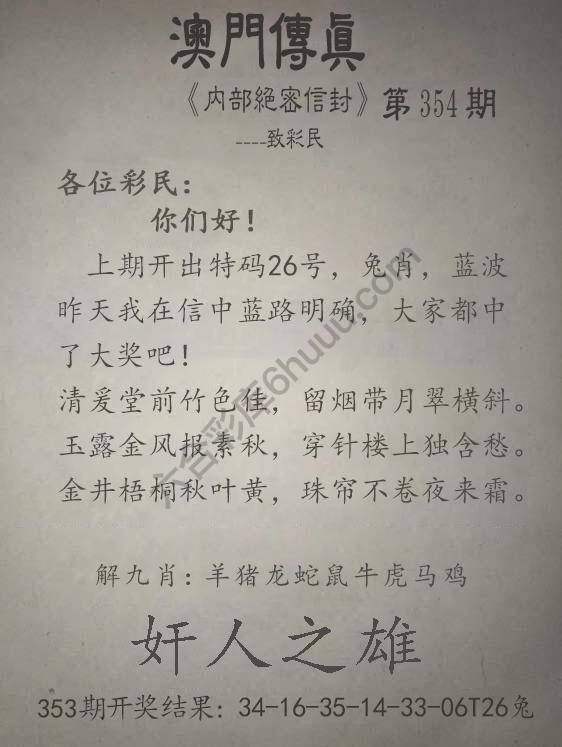 澳門傳眞
《内部絕密信封》第354期
----致彩民
各位彩民：
你们好！
上期开出特码26号，兔肖，蓝波
昨天我在信中蓝路明确，大家都中
了大奖吧！
清爰堂前竹色佳，留烟带月翠横斜。
玉露金风报素秋，穿针楼上独含愁。
金井梧桐秋叶黄，珠帘不卷夜来霜。
解九肖：羊猪龙蛇鼠牛虎马鸡
奸人之雄
353期开奖结果：34-16-35-14-33-06T26兔
六合彩库6huuu.com